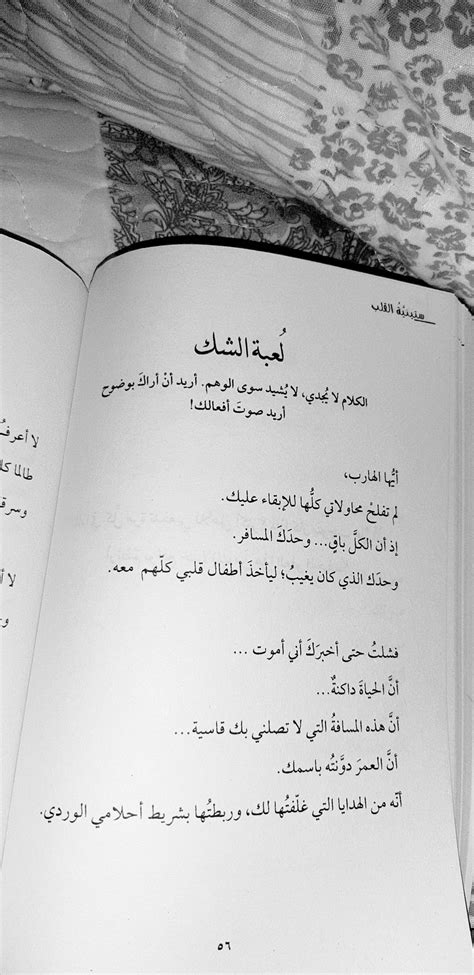 ستينيّةُ القلب
لُعبة الشك
الكلام لا يُجدي، لا يُشيد سوى الوهم. أريد أنْ أراكَ بوضوح
أريد صوتَ أفعالك!
أيُّها الهارب،
لم تفلحْ محاولاتي كلُّها للإبقاء عليك.
إذ أن الكلَّ باقٍ... وحدَكَ المسافر.
وحدَك الذي كان يغيبُ؛ ليأخذَ أطفال قلبي كلّهم معه.
فشلتُ حتى أخبرَكَ أني أموت ...
أنَّ الحياةَ داكنةٌ...
أنَّ هذه المسافةُ التي لا تصلني بك قاسية...
أنَّ العمرَ دوَّنتُه باسمك.
أنّه من الهدايا التي غلّفتُها لك، وربطتُها بشريط أحلامي الوردي.
٥٦
لا أعرف
طالما
وسرق